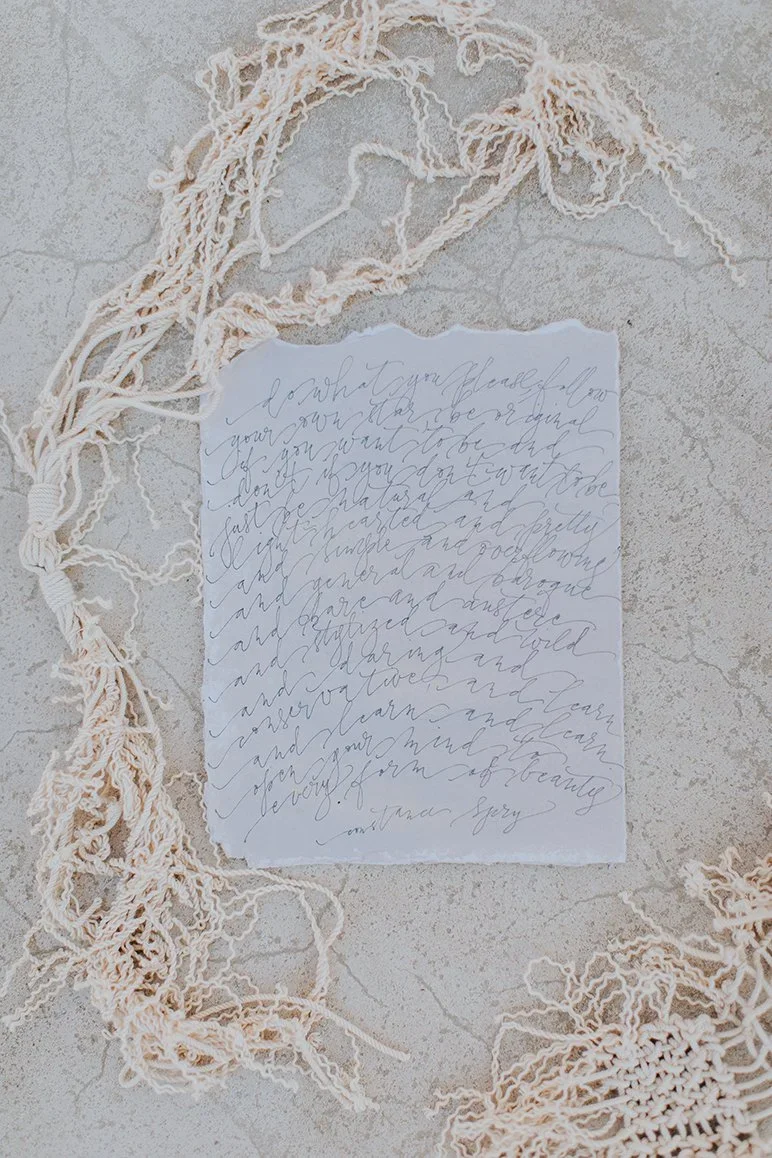 do what you please, follow
your own star be original
if you want to be and
don't if you don't want to be
just be natural and
light hearted and pretty
and simple and overflowing
and general and baroque
and bare and austere
and stylized and wild
and daring and
conservative, and learn
and learn and learn
open your mind to
every form of beauty
constance Spry